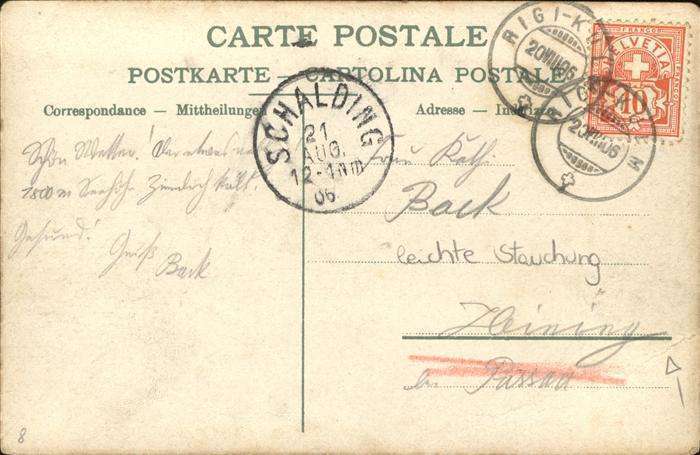 CARTE POSTALE
POSTKARTE — CARTOLINA POSTALE
Correspondance — Mittheilungen
Adresse —
RIGI-KULM
20 VIII 06
RIGI-KULM
20 VIII 06
HELVETIA
FRANCO
10
SCHALDING
21
AUG.
12-1Nm
06
Schön Wetter!
1800 m Seehöh. Ziemlich kalt.
Gesund!
Gruß
Back
Frau Kathi
Back
leichte Stauchung
Heining
bei Passau
8